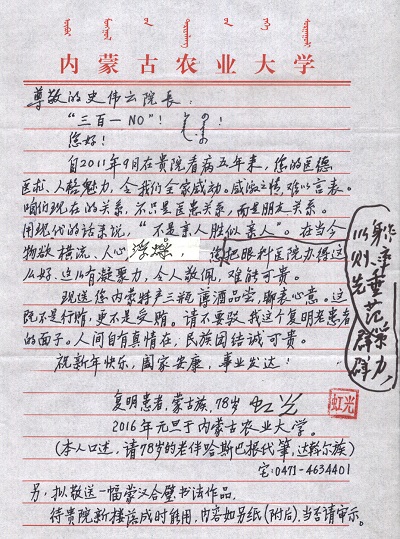 内蒙古农业大学
尊敬的史伟云院长：
“三百一NO”！
您好！
自2011年9月在贵院看病五年来，您的医德
医术、人格魅力，令我们全家感动。感激之情难以言表。
咱们现在的关系，不只是医患关系，而是朋友关系。
用现代的话来说，“不是亲人胜似亲人”。在当今
物欲横流、人心浮燥，您把眼科医院办得这
么好。这么有凝聚力，令人敬佩，难能可贵。
现送您内蒙特产三瓶薄酒品尝，聊表心意。这
既不是行贿，更不是受贿。请不要驳我这个复明老患者
的面子。人间自有真情在，民族团结诚可贵。
祝新年快乐，国家安康，事业发达！
复明患者，蒙古族，78岁 虹光
虹光
2016年元旦于内蒙古农业大学。
（本人口述，请78岁的老伴哈斯巴根代笔，达斡尔族）
宅：0471-4634401
另，拟敬送一幅蒙汉合璧书法作品，
待贵院新楼落成时能用，内容如另纸（附后），当否请审示。
以身
则，
先垂范
群策
群力，